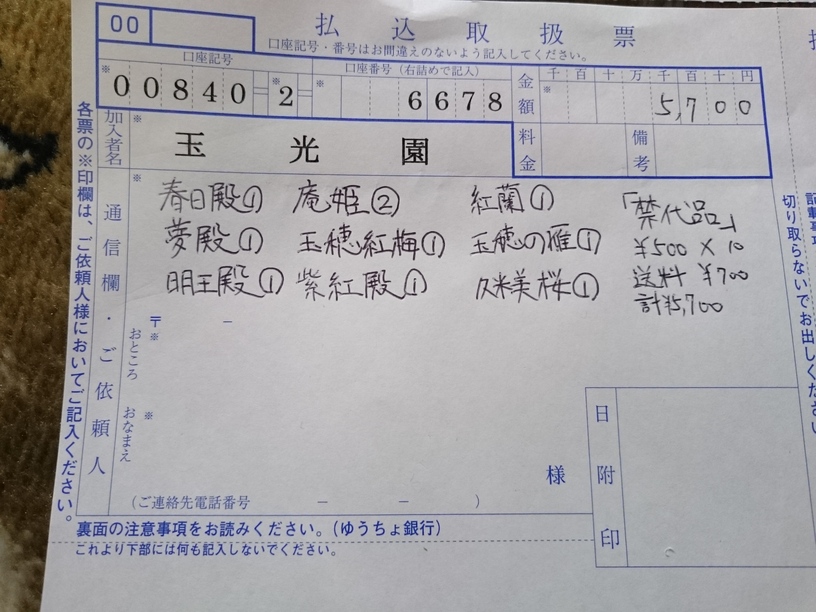 00
払込取扱票
口座記号・番号はお間違えのないよう記入してください。
口座記号
口座番号（右詰めで記入）
金額
千百十万千百十円
※
00840
※
2
※
6678
※
5,700
加入者名
※
玉光園
料金
備考
通信欄・ご依頼人
※
春日殿① 庵姫② 紅蘭①
夢殿① 玉穂紅梅① 玉穂の雅①
明王殿① 紫紅殿① 久米美桜①
「禁代品」
¥500×10
送料 ¥700
計¥5,700
〒 －
※
おところ
※
おなまえ
様
（ご連絡先電話番号 － － ）
日附印
各票の※印欄は、ご依頼人様においてご記入ください。
裏面の注意事項をお読みください。（ゆうちょ銀行）
これより下部には何も記入しないでください。
切り取らないでお出しください